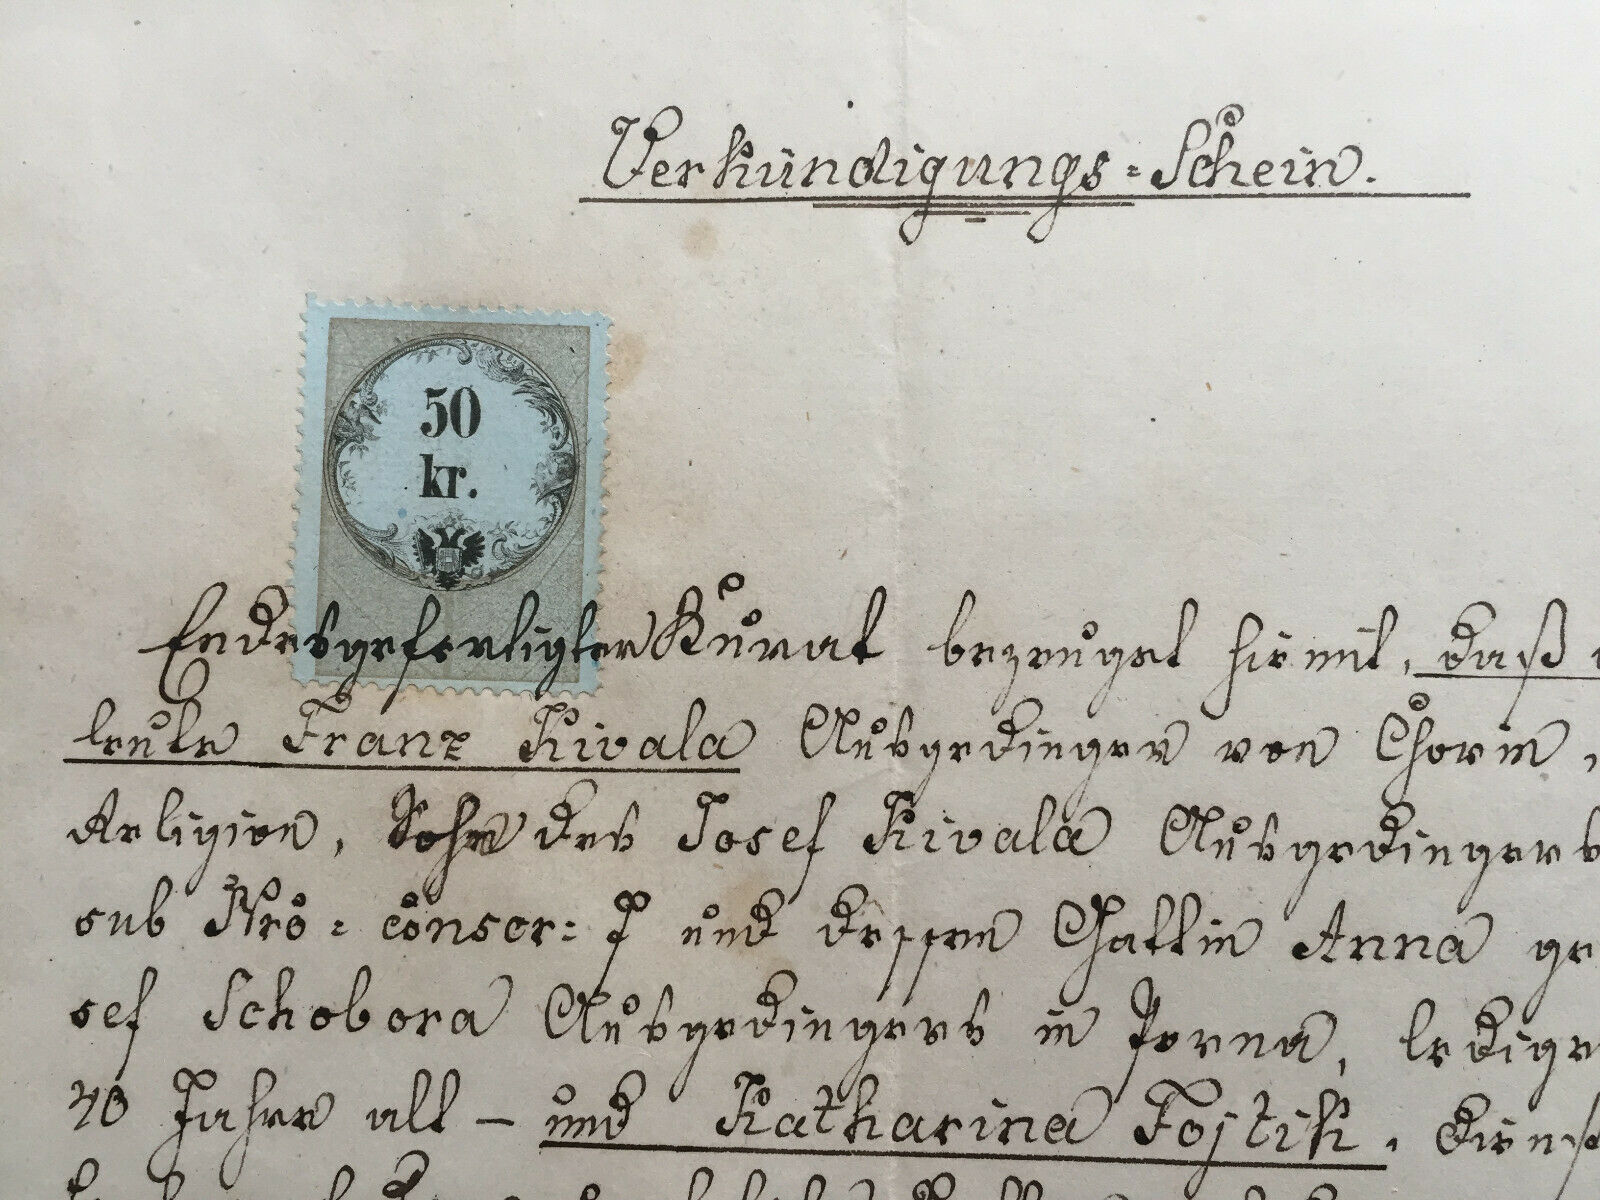 Verkündigungs=Schein.
50
kr.
Endesgefertigter Kurat bezeuget hiemit, daß
leute Franz Kivala Ausgedinger von Chorin,
Religion, Sohn des Josef Kivala Ausgedingers
sub Nro: conscr: 7 und dessen Gattin Anna ge
sef Schobora Ausgedingers in Perna, ledige
40 Jahre alt – und Katharina Fojtik, Dienst